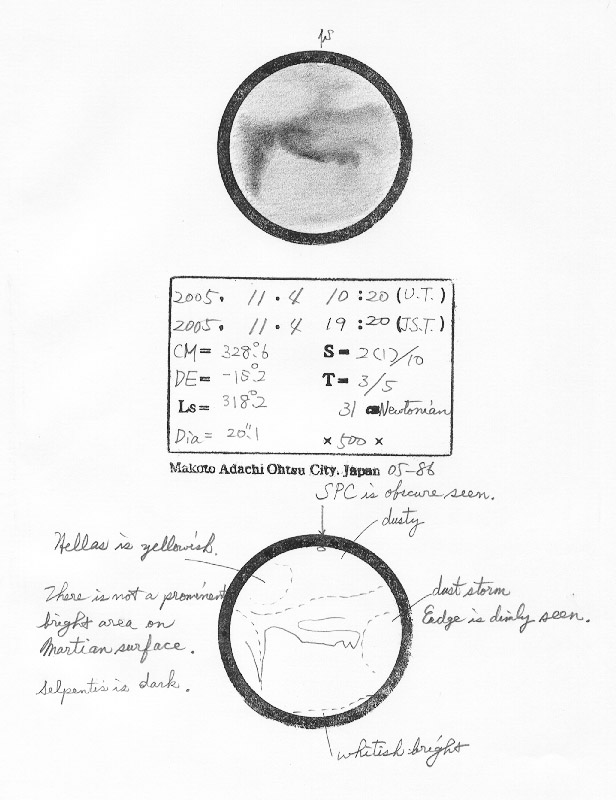 2005. 11. 4 10:20 (U.T.)
2005. 11. 4 19:20 (J.S.T.)
CM= 328.°6 S= 2(1)/10
DE= -18.°2 T= 3/5
Ls= 318.°2 31 cm Newtonian
Dia= 20."1 × 500 ×
Makoto Adachi Ohtsu City. Japan 05-86
SPC is obscure seen.
dusty
Hellas is yellowish.
There is not a prominent
bright area on
Martian surface.
Selpentis is dark.
dust storm
Eadge is dimly seen.
whitish bright